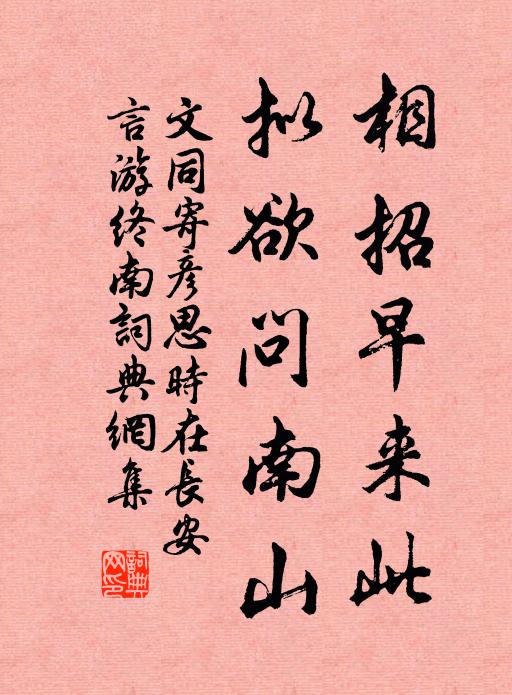 相招早来此
拟欲问南山
文同寄彦思時在長安
言游终南詞典網集
詞典網印